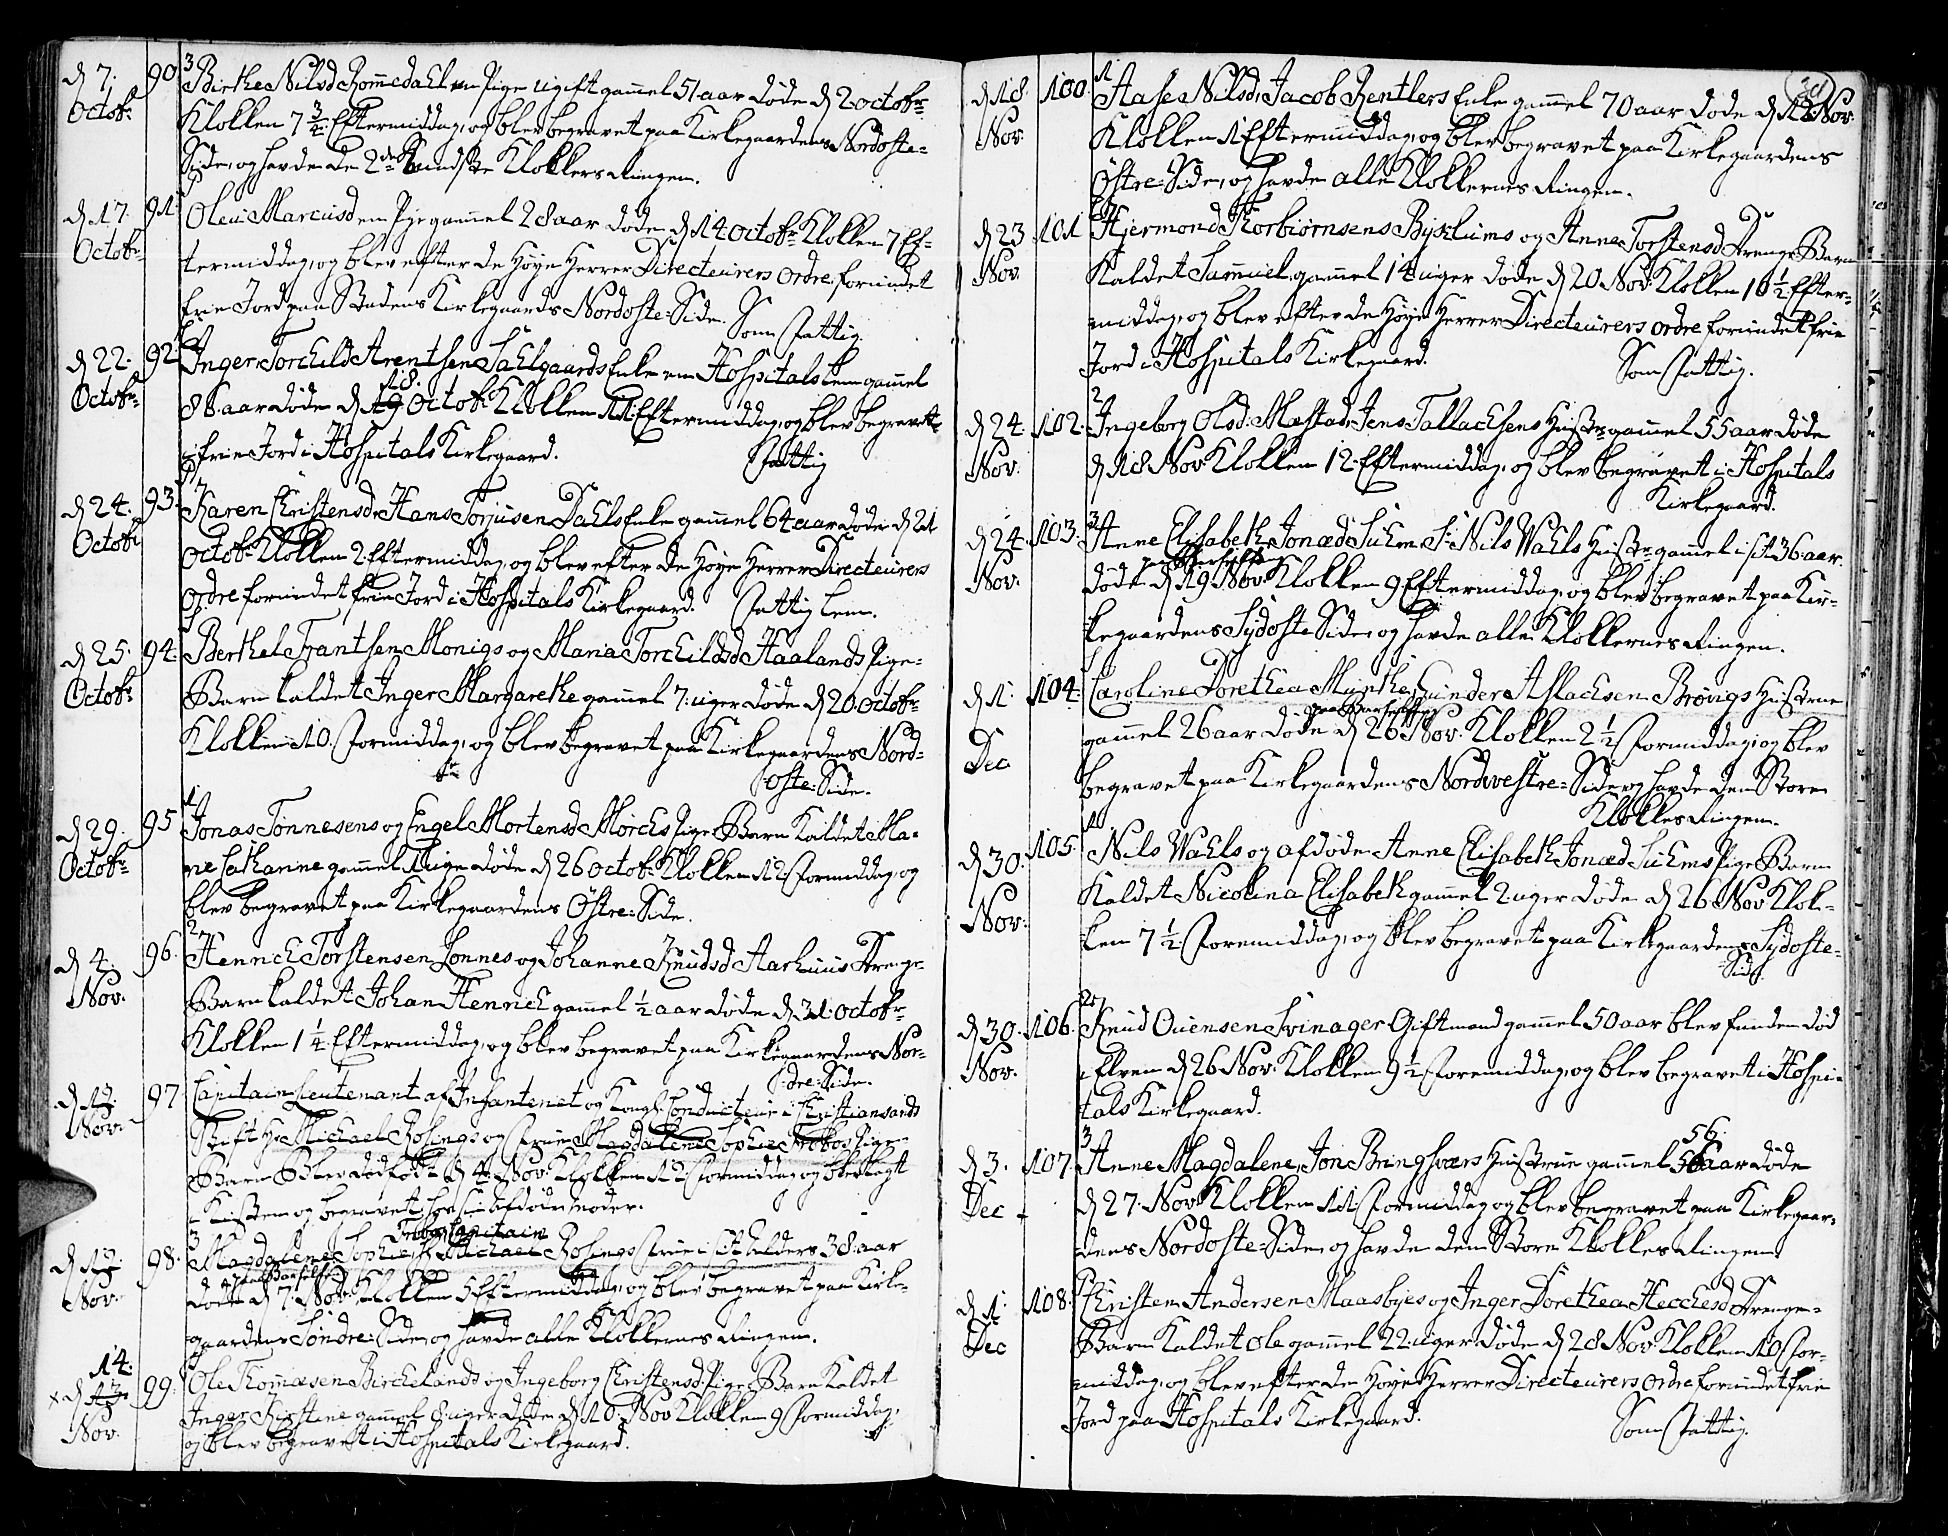 d 7. Octobr 90. 3 Birthe Nilsd Rommedahl en Pige ugift gammel 51 aar døde d 2 Octobr
Klokken 7 3/4 Eftermiddag, og blev begravet paa Kirkegaardens Nordøste-
Side, og havde de 2de mindste Klokkers Ringen.
d 17. Octobr 91. Oleu Marcusd en Pige gammel 28 aar døde d 14 Octobr Klokken 7 Ef-
termiddag, og blev efter de Høye Herrer Directeurers Ordre forundt
frie Jord paa Stadens Kirkegaards Nordøste-Side. Som Fattig.
d 22. Octobr 92. Inger Torchild Arentsen Dahlgaards Enke en Hospitals Lem gammel
88 aar døde d 18. Octobr Klokken 11 Eftermiddag, og blev begravet
i frie Jord i Hospitals Kirkegaard. Fattig
d 24. Octobr 93. Karen Christensd Hans Torjusen Dahls Enke gammel 64 aar døde d 21
Octobr Klokken 2 Eftermiddag, og blev efter de Høye Herrer Directeurers
Ordre forundet frie Jord i Hospitals Kirkegaard. Fattig Lem.
d 25. Octobr 94. Berthel Frantsen Monigs og Maria Torchildsd Haalands Pige-
Barn kaldet Inger Margarethe gammel 7 uger døde d 20. Octobr
Klokken 10. Formiddag, og blev begravet paa Kirkegaardens Nord-
øste-Side.
d 29. Octobr 95. 1 Jonas Tønnesens og Engel Mortensd Mørchs Pige Barn kaldet Ma-
ne Cathanne gammel 1 uge døde d 26 Octobr Klokken 12 Formiddag, og
blev begravet paa Kirkegaardens Østre-Side.
d 4. Nov. 96. 2 Hennich Torstensen Lonnes og Johanne Knudsd Aarhuus Drenge-
Barn kaldet Johan Hennich gammel 1/2 aar døde d 31. Octobr
Klokken 1 1/4 Eftermiddag, og blev begravet paa Kirkegaardens Nor-
dre-Side.
d 12. Nov. 97. Capitain Lieutenant af Infanteriet og Kongl. Conducteur i Christiansands
Stift Hr Michael Rosings og Frue Magdalene Sophie Pige-
Barn Blev dødfødt d 4 Nov. Klokken 12 Formiddag, og blev lagt
i Kisten og begravet hos sin Afdøde Moder.
d 12. Nov. 98. 3 Magdalene Sophie Capitain Michael Rosings Frue i sit Alders 38 aar
døde i Barselseng d 7. Nov. Klokken 5 Eftermiddag, og blev begravet paa Kirke-
gaardens Søndre-Side, og havde alle Klokkernes Ringen.
x d 14. Nov. 99. Ole Thomæsen Birchelands og Ingeborg Christensd. Pige Barn Kaldet
Inger Kirstine gammel 8 uger døde d 10. Nov. Klokken 9 Formiddag,
og blev begravet i Hospitals Kirkegaard.
d 18. Nov. 100. 1 Aase Nilsd, Jacob Rentlers Enke gammel 70 aar døde d 12 Nov.
Klokken 1 Eftermiddag, og blev begravet paa Kirkegaardens
Østre-Side, og havde alle Klokkernes Ringen.
d 23 Nov. 101. Hjermond Thorbiørnsens Byklums og Anne Torstensd Drenge Barn
Kaldet Sammuel gammel 14 uger døde d 20 Nov. Klokken 10 1/2 Efter-
middag, og blev efter de Høye Herrer Directeurers Ordre forundet frie
Jord i Hospitals Kirkegaard. Som Fattig.
d 24 Nov. 102. 2 Ingeborg Olsd. Mæstad, Jens Tallachsens Hustr. gammel 55 aar døde
d 18 Nov. Klokken 12 Eftermiddag, og blev begravet i Hospitals
Kirkegaard.
d 24 Nov. 103. 3 Anne Elisabeth Jonæd Suhm, Sr Nils Wahls Hustr. gammel i sit 36 aar.
døde i Barselseng d 19 Nov. Klokken 9 Eftermiddag, og blev begravet paa Kir-
kegaardens Sydøste Side, og havde alle Klokkernes Ringen.
d 1. Dec 104. Caroline Dorethea Munthe, Gunder Aslachsen Brøvigs Hustrue
gammel 26 aar døde i Barselseng d 26 Nov. Klokken 2 1/2 Formiddag, og blev
begravet paa Kirkegaardens Nordvestre-Side og havde den Store
Klokkes Ringen.
d 30. Nov. 105. 1 Nils Wahls og afdøde Anne Elisabeth Jonæd Suhms Pige Barn
Kaldet Nicolina Elisabeth gammel 2 uger døde d 26 Nov Klok-
ken 7 1/2 Foremiddag, og blev begravet paa Kirkegaardens Sydøste-
Side
d 30. Nov. 106. 2 Knud Ouensen Svinager Giftmand gammel 50 aar blev funden død
i Elven d 26 Nov. Klokken 9 1/2 Foremiddag, og blev begravet i Hospi-
tals Kirkegaard.
d 3. Dec 107. 3 Anne Magdalene, Jon Bringsværs Hustrue gammel 56 aar døde
d 27. Nov. Klokken 11 Formiddag og blev begravet paa Kirkegaar-
dens Nordøste-Side, og havde den Store Klokkes Ringen
d 1. Dec 108. Christen Andersen Maasbyes og Inger Dorethea Hecchesd Drenge-
Barn Kaldet Ole gammel 22 uger døde d 28 Nov. Klokken 10 For-
middag, og blev efter de Høye Herrer Directeurers Ordre forundet frie
Jord paa Hospitals Kirkegaard. Som Fattig.